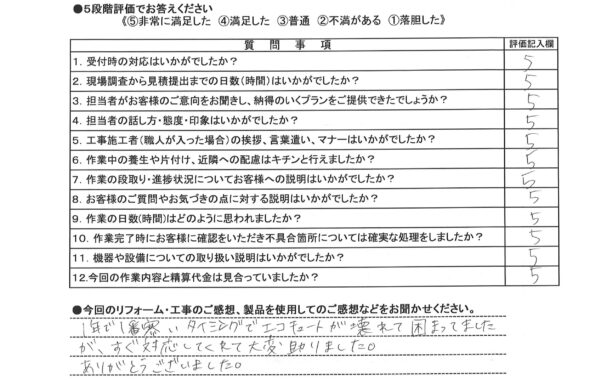 ●5段階評価でお答えください
《⑤非常に満足した ④満足した ③普通 ②不満がある ①落胆した》
質問事項 評価記入欄
1. 受付時の対応はいかがでしたか？ 5
2. 現場調査から見積提出までの日数(時間)はいかがでしたか？ 5
3. 担当者がお客様のご意向をお聞きし、納得のいくプランをご提供できたでしょうか？ 5
4. 担当者の話し方・態度・印象はいかがでしたか？ 5
5. 工事施工者(職人が入った場合)の挨拶、言葉遣い、マナーはいかがでしたか？ 5
6. 作業中の養生や片付け、近隣への配慮はキチンと行えましたか？ 5
7. 作業の段取り・進捗状況についてお客様への説明はいかがでしたか？ 5
8. お客様のご質問やお気づきの点に対する説明はいかがでしたか？ 5
9. 作業の日数(時間)はどのように思われましたか？ 5
10. 作業完了時にお客様に確認をいただき不具合箇所については確実な処理をしましたか？ 5
11. 機器や設備についての取り扱い説明はいかがでしたか？ 5
12.今回の作業内容と精算代金は見合っていましたか？ 5
●今回のリフォーム・工事のご感想、製品を使用してのご感想などをお聞かせください。
1年で1番寒いタイミングでエコキュートが壊れて困まってました
が、すぐ対応してくれて大変助りました。
ありがとうございました。